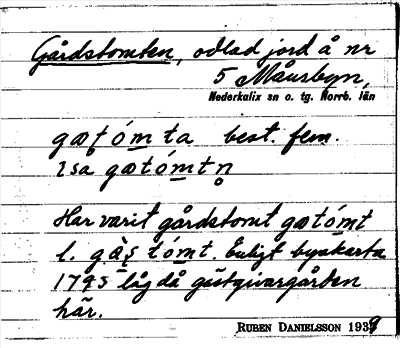 Gårdstomten, odlad jord å nr
5 Månsbyn,
Nederkalix sn o. tg. Norrb. län
gæṭómta best. fem.
isa gætómtn̥
Har varit gårdstomt gætómt
l. gàṣtómt. Enligt byakarta
1795 låg då gästgivargården
här.
RUBEN DANIELSSON 1939